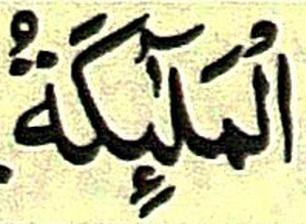 الْمَلٰٓئِكَةُ